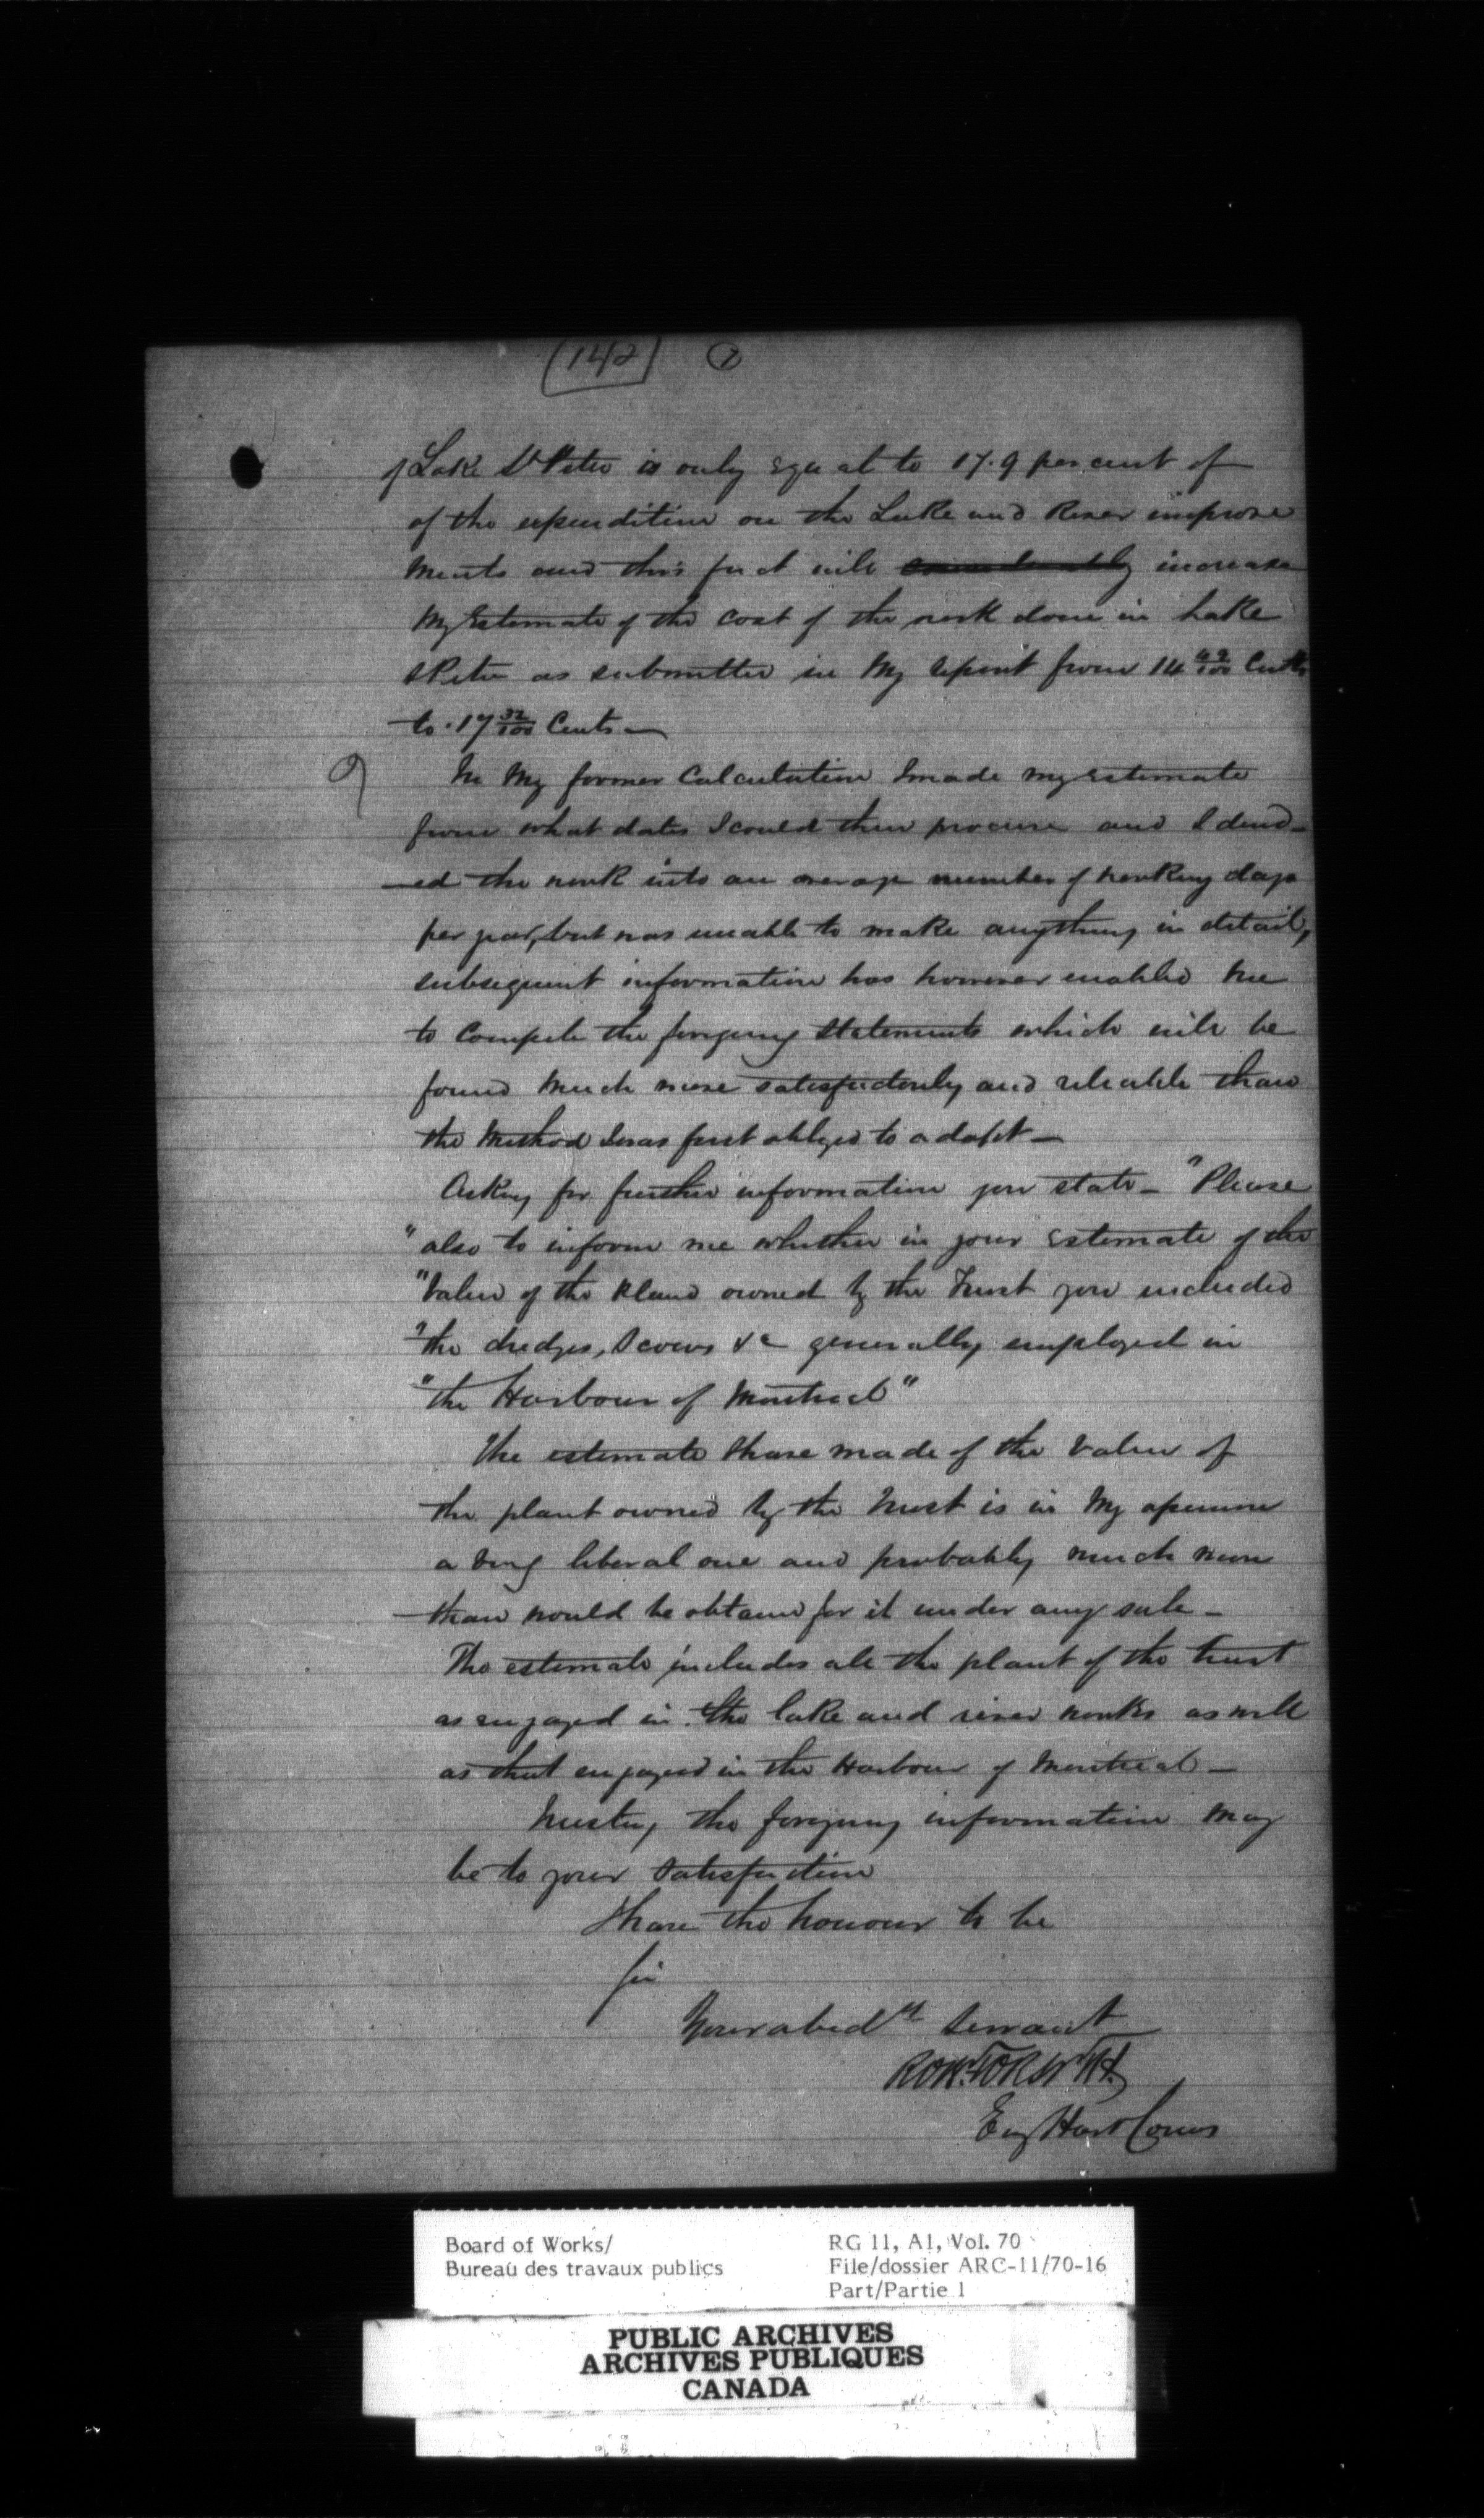 (142) 7
of Lake St Peter is only equal to 17.9 per cent of
of the expenditure on the Lake and River improve
ments and this fact will considerably increase
my Estimate of the cost of the work done in Lake
St Peter as submitted in my report from 14 42/100 Cents
to .17 32/100 Cents —
In my former Calculation I made my estimate
from what data I could then procure and I divid-
-ed the work into an average number of working days
per year, but was unable to make anything in detail,
subsequent information has however enabled me
to compile the foregoing statements which will be
found much more satisfactorily and reliable than
the method I was first obliged to adopt —
Asking for further information you state — "Please
"also to inform me whether in your Estimate of the
"value of the Plant owned by the Trust you included
"the dredges, Scows &c generally employed in
"the Harbour of Montreal"
The estimate I have made of the value of
the plant owned by the Trust is in my opinion
a very liberal one and probably much more
than would be obtained for it under any sale —
The estimate includes all the plant of the Trust
as engaged in the lake and river works as well
as that engaged in the Harbour of Montreal —
Trusting the foregoing information may
be to your satisfaction
I have the honour to be
Sir
Your obedt Servant
Eng Harb Comrs
Board of Works/
Bureau des travaux publics
RG 11, A1, Vol. 70
File/dossier ARC-11/70-16
Part/Partie 1
PUBLIC ARCHIVES
ARCHIVES PUBLIQUES
CANADA